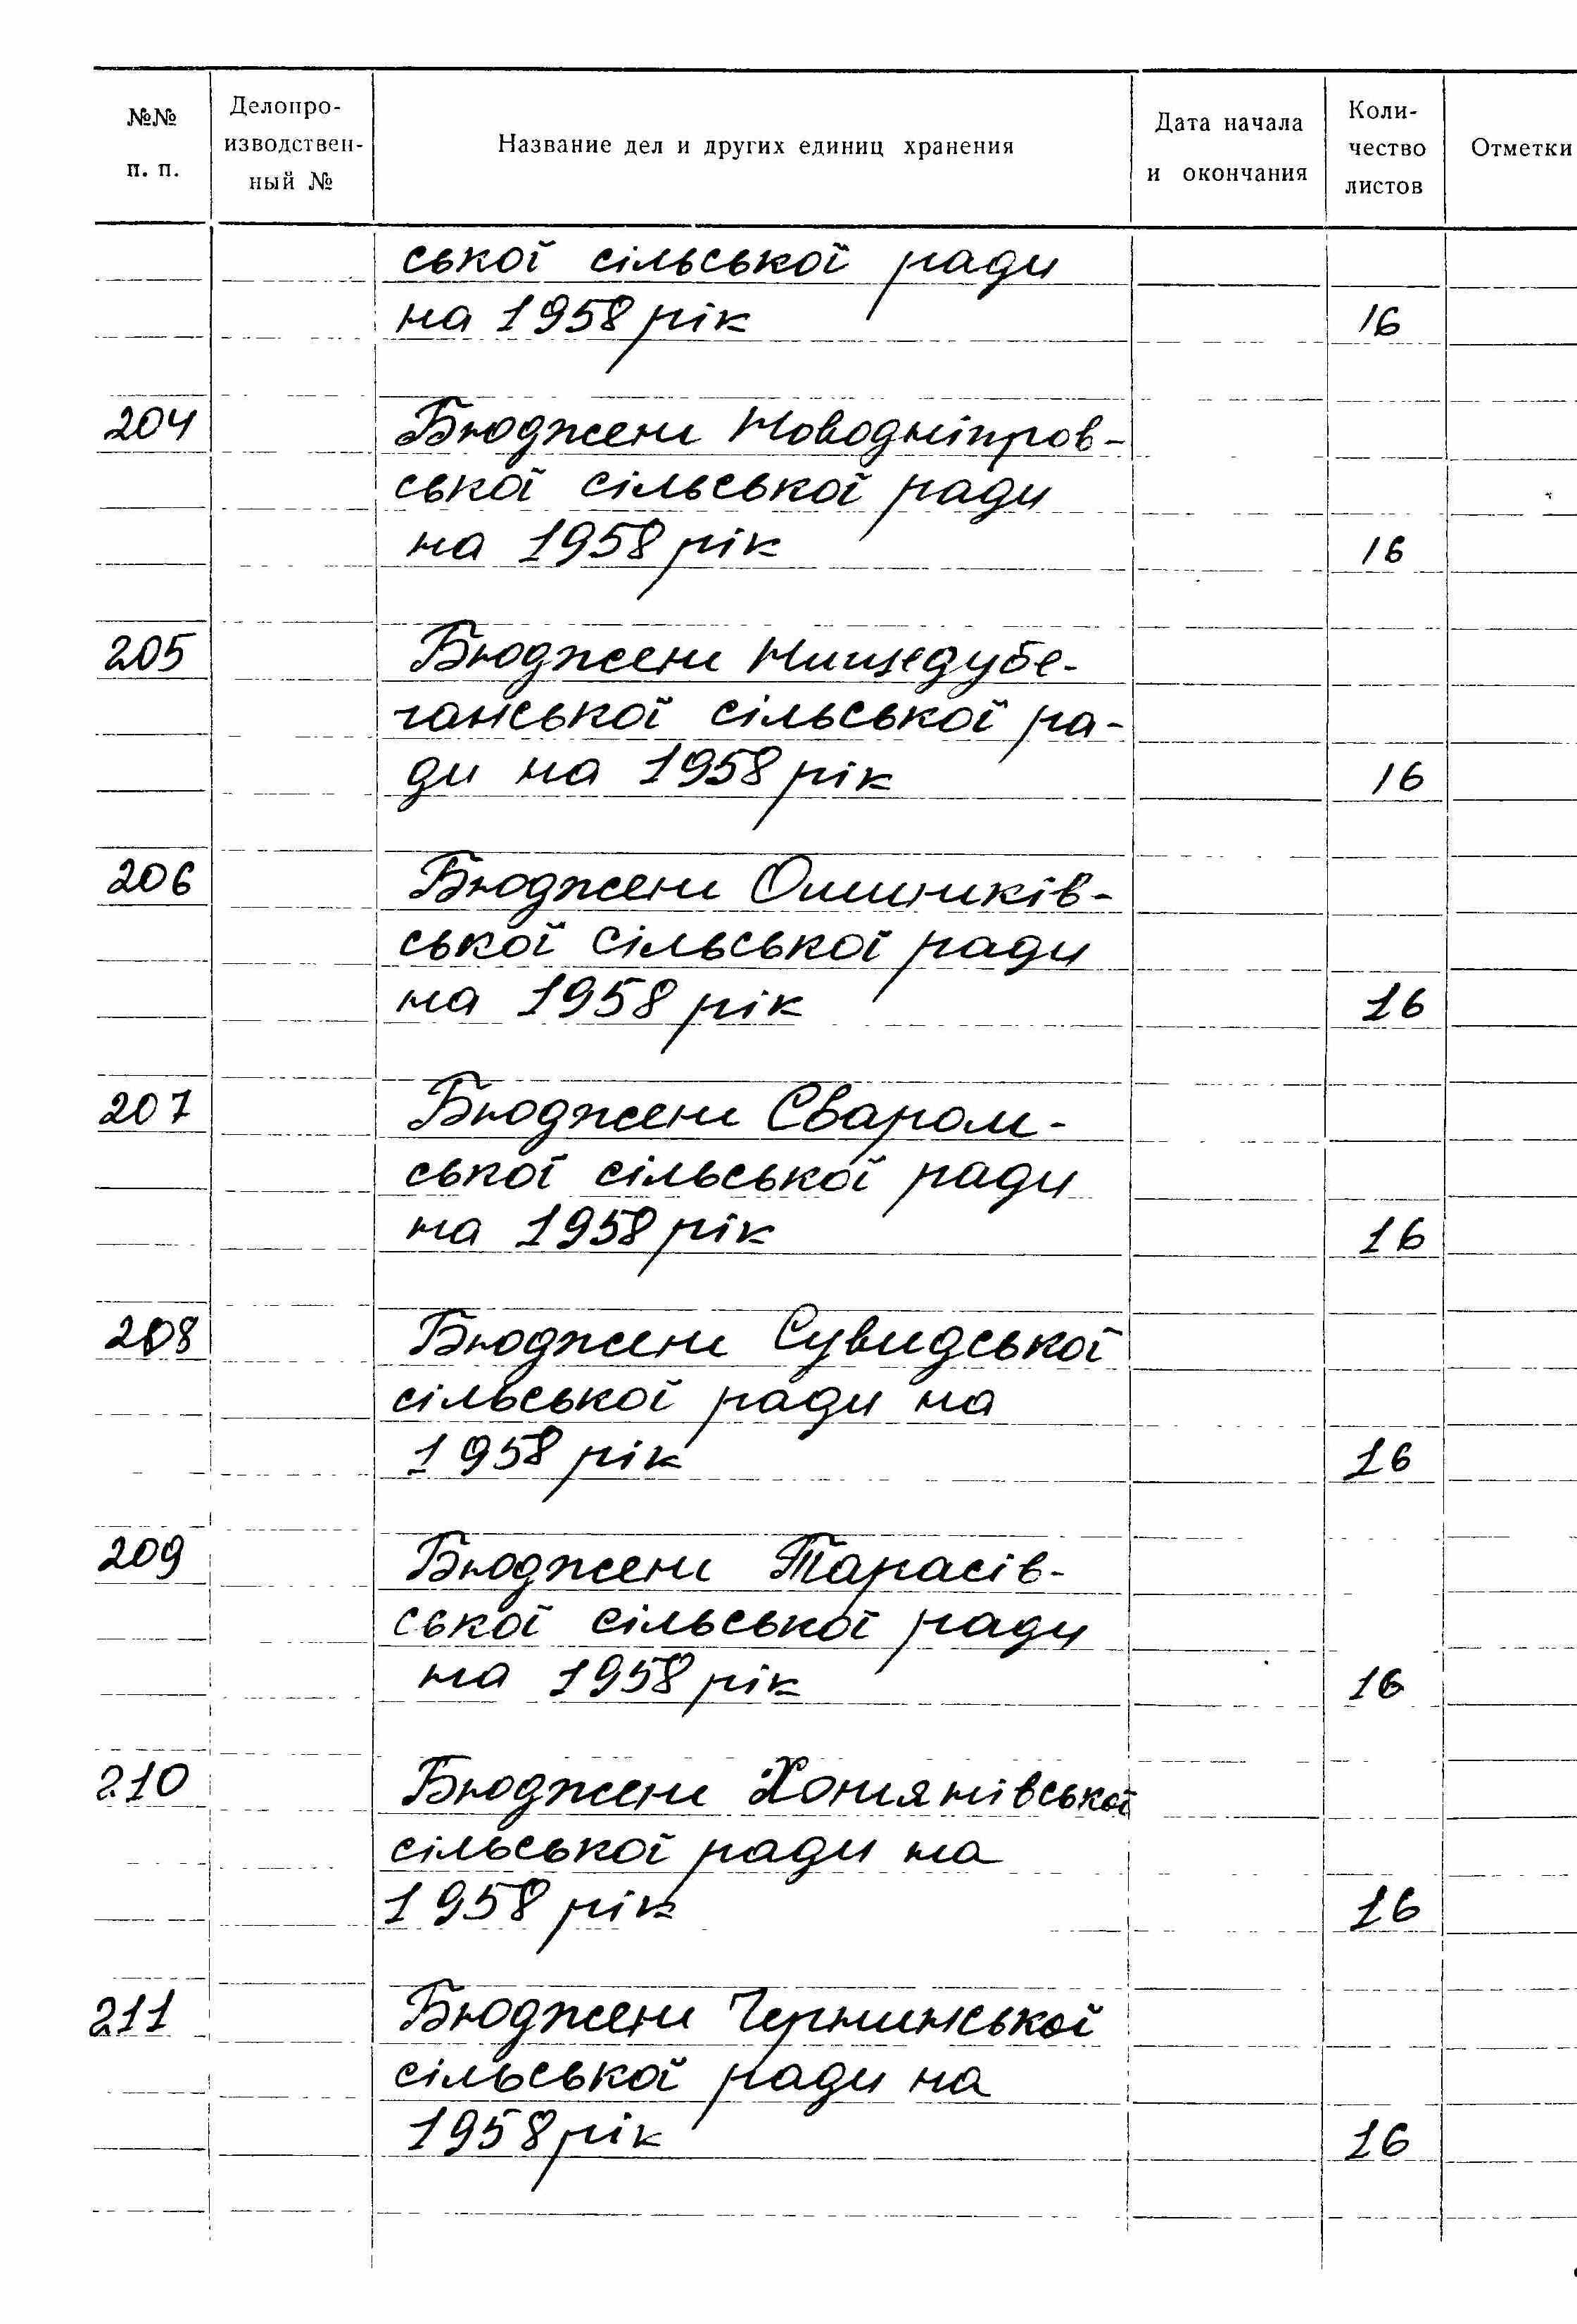 №№ п. п.
Делопро-
изводствен-
ный №
Название дел и других единиц хранения
Дата начала
и окончания
Коли-
чество
листов
Отметки
ської сільської ради
на 1958 рік 16
204 Бюджети Новодніпров-
ської сільської ради
на 1958 рік 16
205 Бюджети Нижчедубе-
чанської сільської ра-
ди на 1958 рік 16
206 Бюджети Ошитків-
ської сільської ради
на 1958 рік 16
207 Бюджети Сваром-
ської сільської ради
на 1958 рік 16
208 Бюджети Сувидської
сільської ради на
1958 рік 16
209 Бюджети Тарасів-
ської сільської ради
на 1958 рік 16
210 Бюджети Хотянівської
сільської ради на
1958 рік 16
211 Бюджети Чернинської
сільської ради на
1958 рік 16